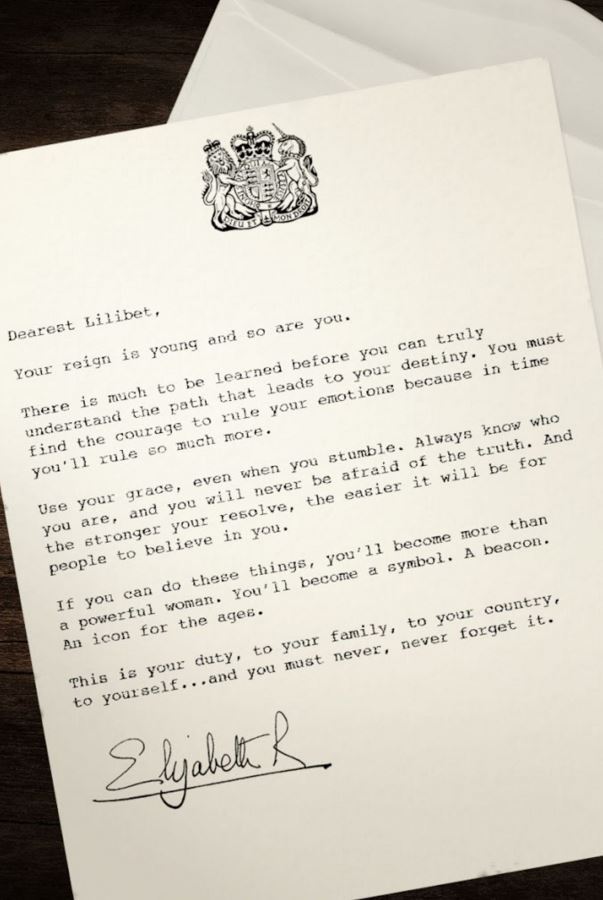 DIEU ET MON DROIT
Dearest Lilibet,
Your reign is young and so are you.
There is much to be learned before you can truly
understand the path that leads to your destiny. You must
find the courage to rule your emotions because in time
you'll rule so much more.
Use your grace, even when you stumble. Always know who
you are, and you will never be afraid of the truth. And
the stronger your resolve, the easier it will be for
people to believe in you.
If you can do these things, you'll become more than
a powerful woman. You'll become a symbol. A beacon.
An icon for the ages.
This is your duty, to your family, to your country,
to yourself...and you must never, never forget it.
Elizabeth R